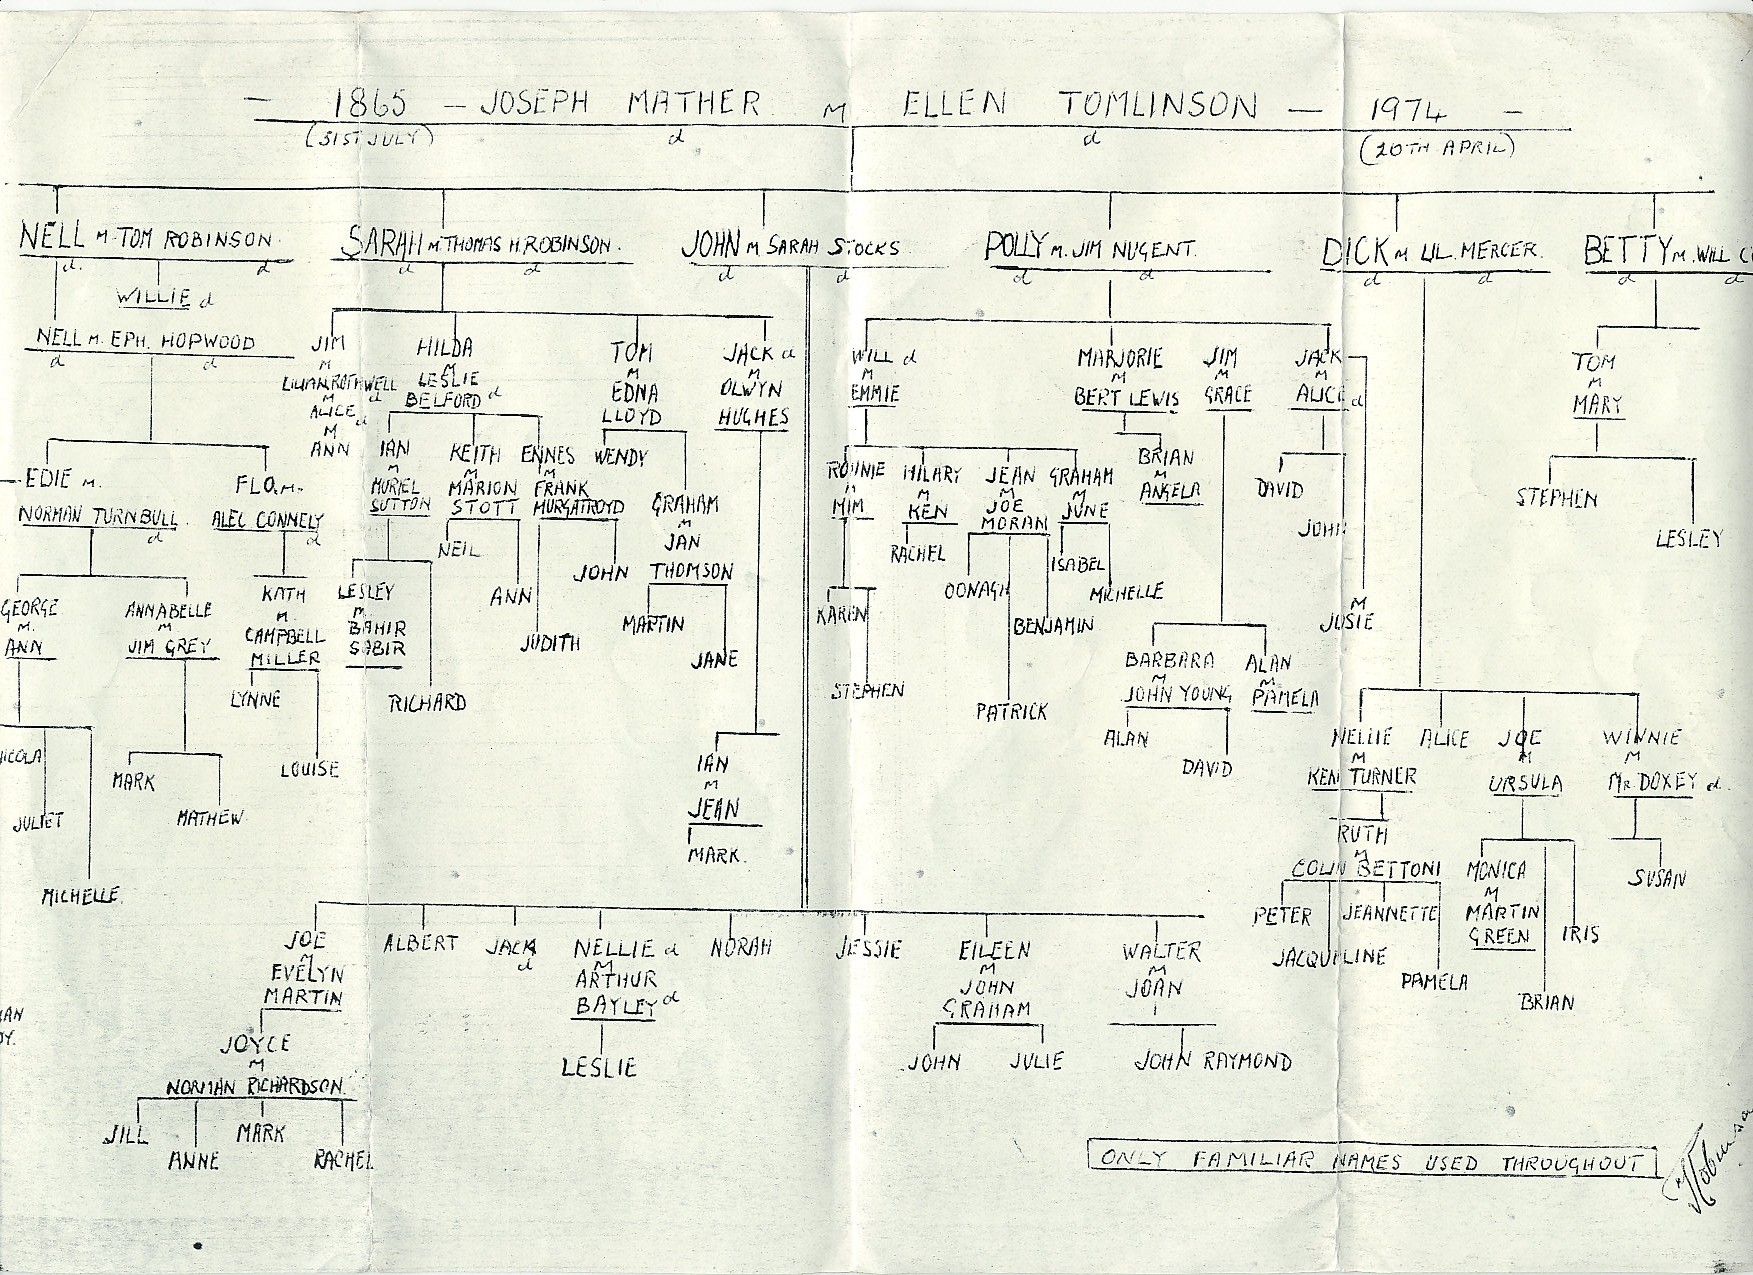 — 1865 — JOSEPH MATHER M ELLEN TOMLINSON — 1974 —
(31ST JULY) d d (20TH APRIL)
NELL M. TOM ROBINSON. SARAH M. THOMAS H. ROBINSON. JOHN M SARAH STOCKS POLLY M. JIM NUGENT. DICK M LIL. MERCER. BETTY M. WILL
d. d d d d d d d d d d d
WILLIE d
NELL M. EPH. HOPWOOD
d d
JIM HILDA TOM JACK d WILL d MARJORIE JIM JACK TOM
M M M M M M M M M
LILIAN ROTHWELL d LESLIE EDNA OLWYN EMMIE BERT LEWIS GRACE ALICE d MARY
M BELFORD d LLOYD HUGHES
ALICE d
M
ANN
IAN KEITH ENNES WENDY RONNIE HILARY JEAN GRAHAM BRIAN DAVID STEPHEN
M M M M M M M M
MURIEL MARION FRANK MIM KEN JOE JUNE ANGELA
SUTTON STOTT MURGATROYD MORAN
EDIE M. FLO. M.
NORMAN TURNBULL. ALEC CONNELY
d d
GRAHAM JOHN LESLEY
M
JAN
THOMSON
NEIL JOHN RACHEL ISABEL
ANN OONAGH MICHELLE
GEORGE ANNABELLE KATH LESLEY MARTIN KAREN BENJAMIN M
M. M M. M. JOSIE
ANN JIM GREY CAMPBELL BAHIR
MILLER SABIR
JUDITH JANE
BARBARA ALAN
M M
JOHN YOUNG PAMELA
LYNNE RICHARD STEPHEN PATRICK
ALAN
DAVID
NELLIE ALICE JOE WINNIE
M M M
KEN TURNER URSULA MR. DOXEY d.
MARK LOUISE IAN
M
JEAN
JULIET MATHEW
MARK.
RUTH
M
COLIN BETTONI MONICA SUSAN
M
MARTIN
GREEN
MICHELLE.
PETER JEANNETTE IRIS
JACQUELINE
PAMELA
BRIAN
JOE ALBERT JACK NELLIE d NORAH JESSIE EILEEN WALTER
M d M M M
EVELYN ARTHUR JOHN JOAN
MARTIN BAYLEY d GRAHAM
JOYCE LESLIE JOHN JULIE JOHN RAYMOND
M
NORMAN RICHARDSON.
JILL MARK
ANNE RACHEL
ONLY FAMILIAR NAMES USED THROUGHOUT